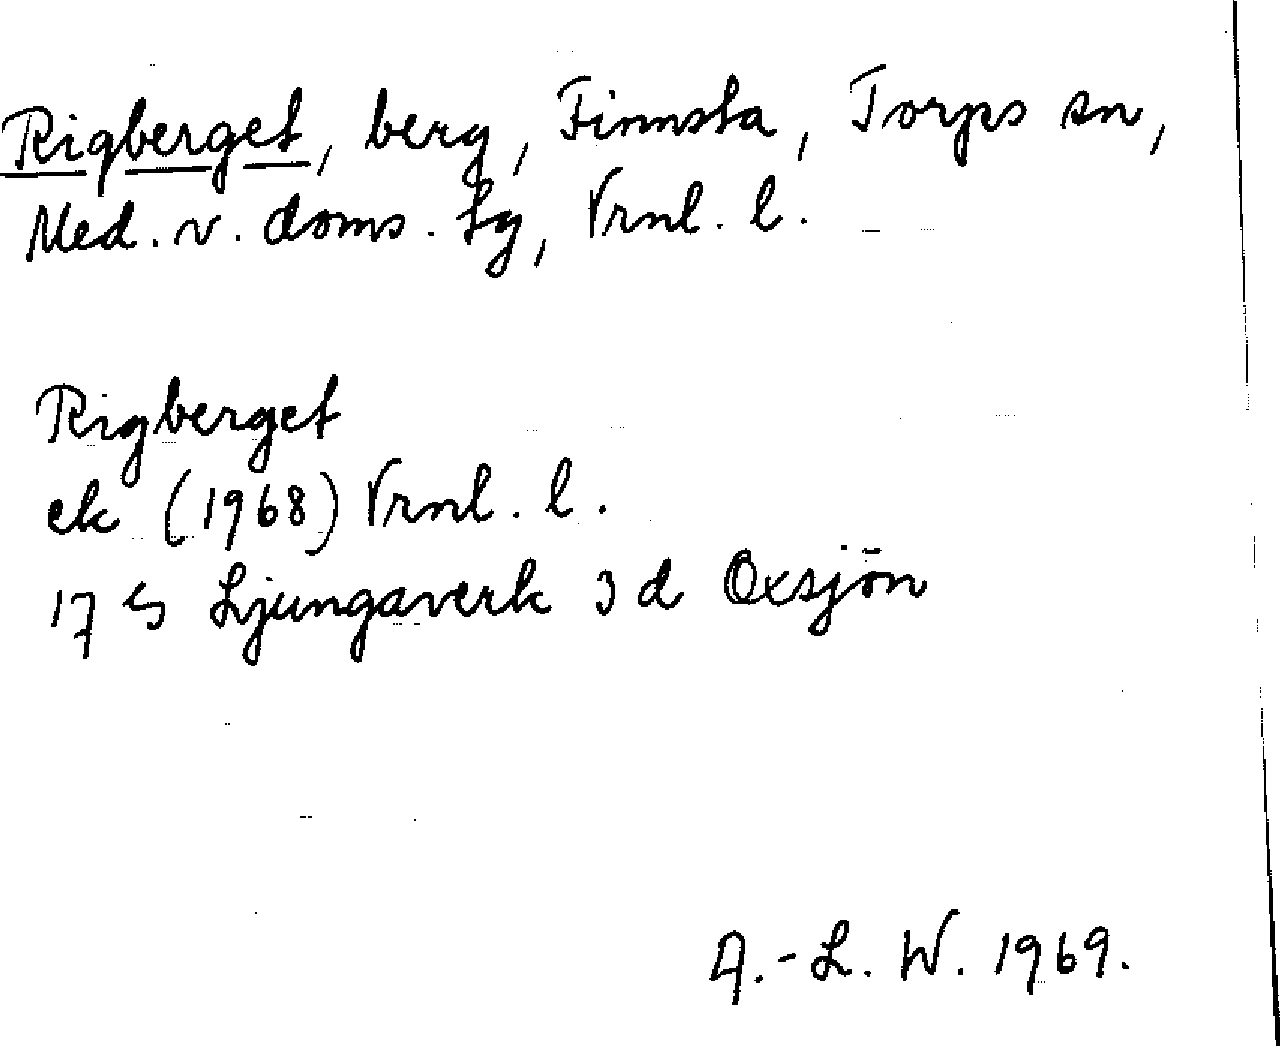 Rigberget, berg, Finnsta, Torps sn,
Med. v. doms. tg, Vrnl. l.
Rigberget
ek (1968) Vrnl. l.
17 G Ljungaverk 3 d Oxsjön
A.-L. W. 1969.